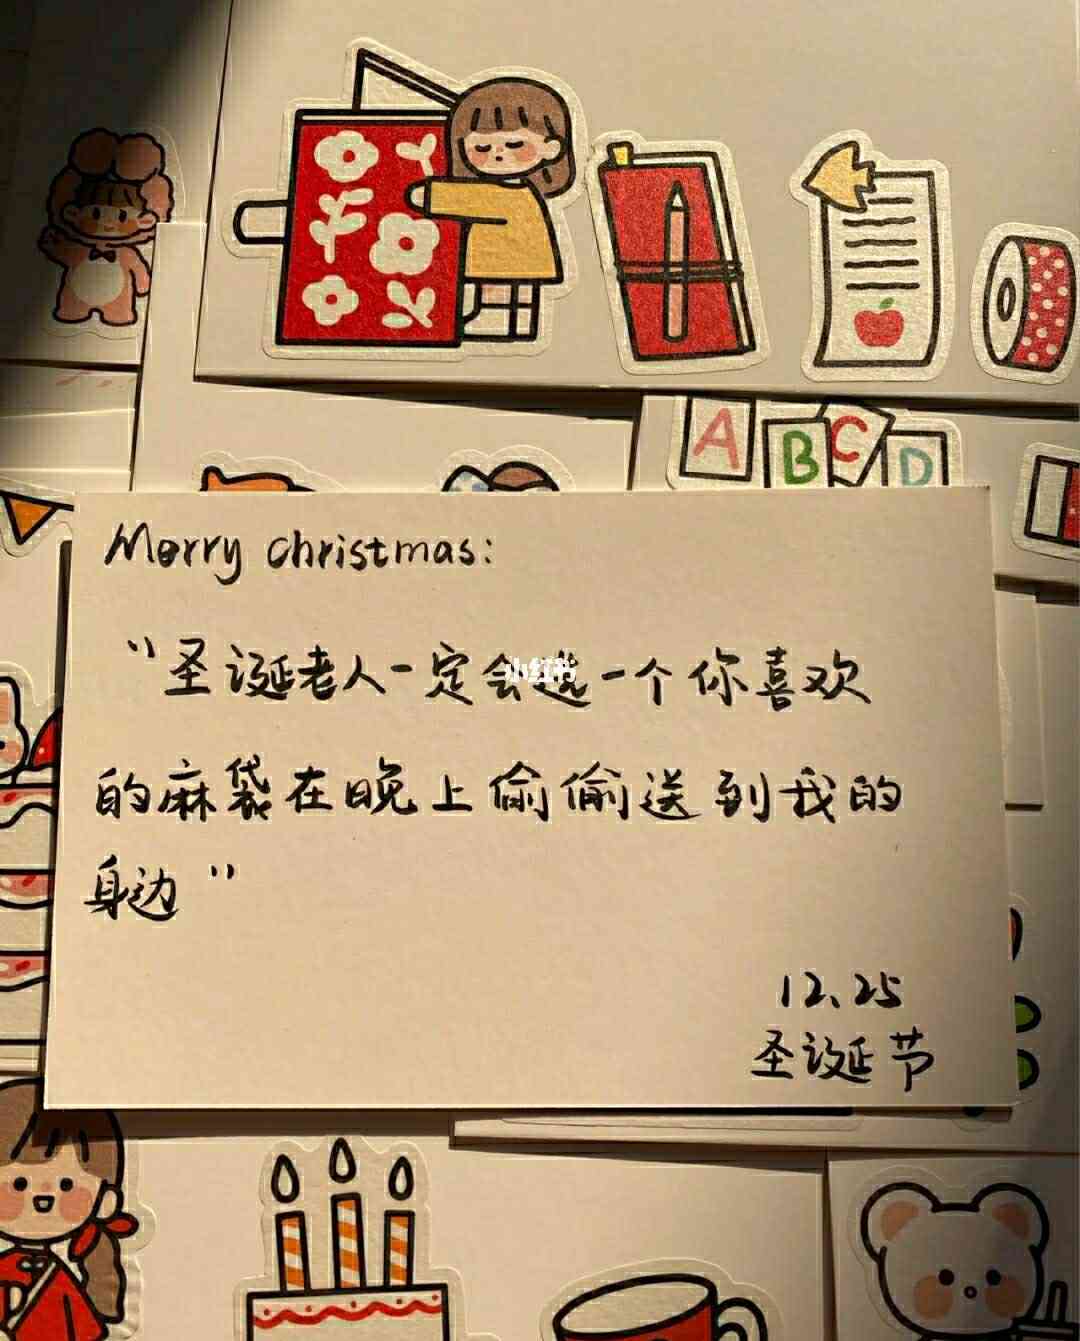 A
B
C
D
Merry christmas:
"圣诞老人一定会选一个你喜欢
小红书
的麻袋在晚上偷偷送到我的
身边"
12.25
圣诞节